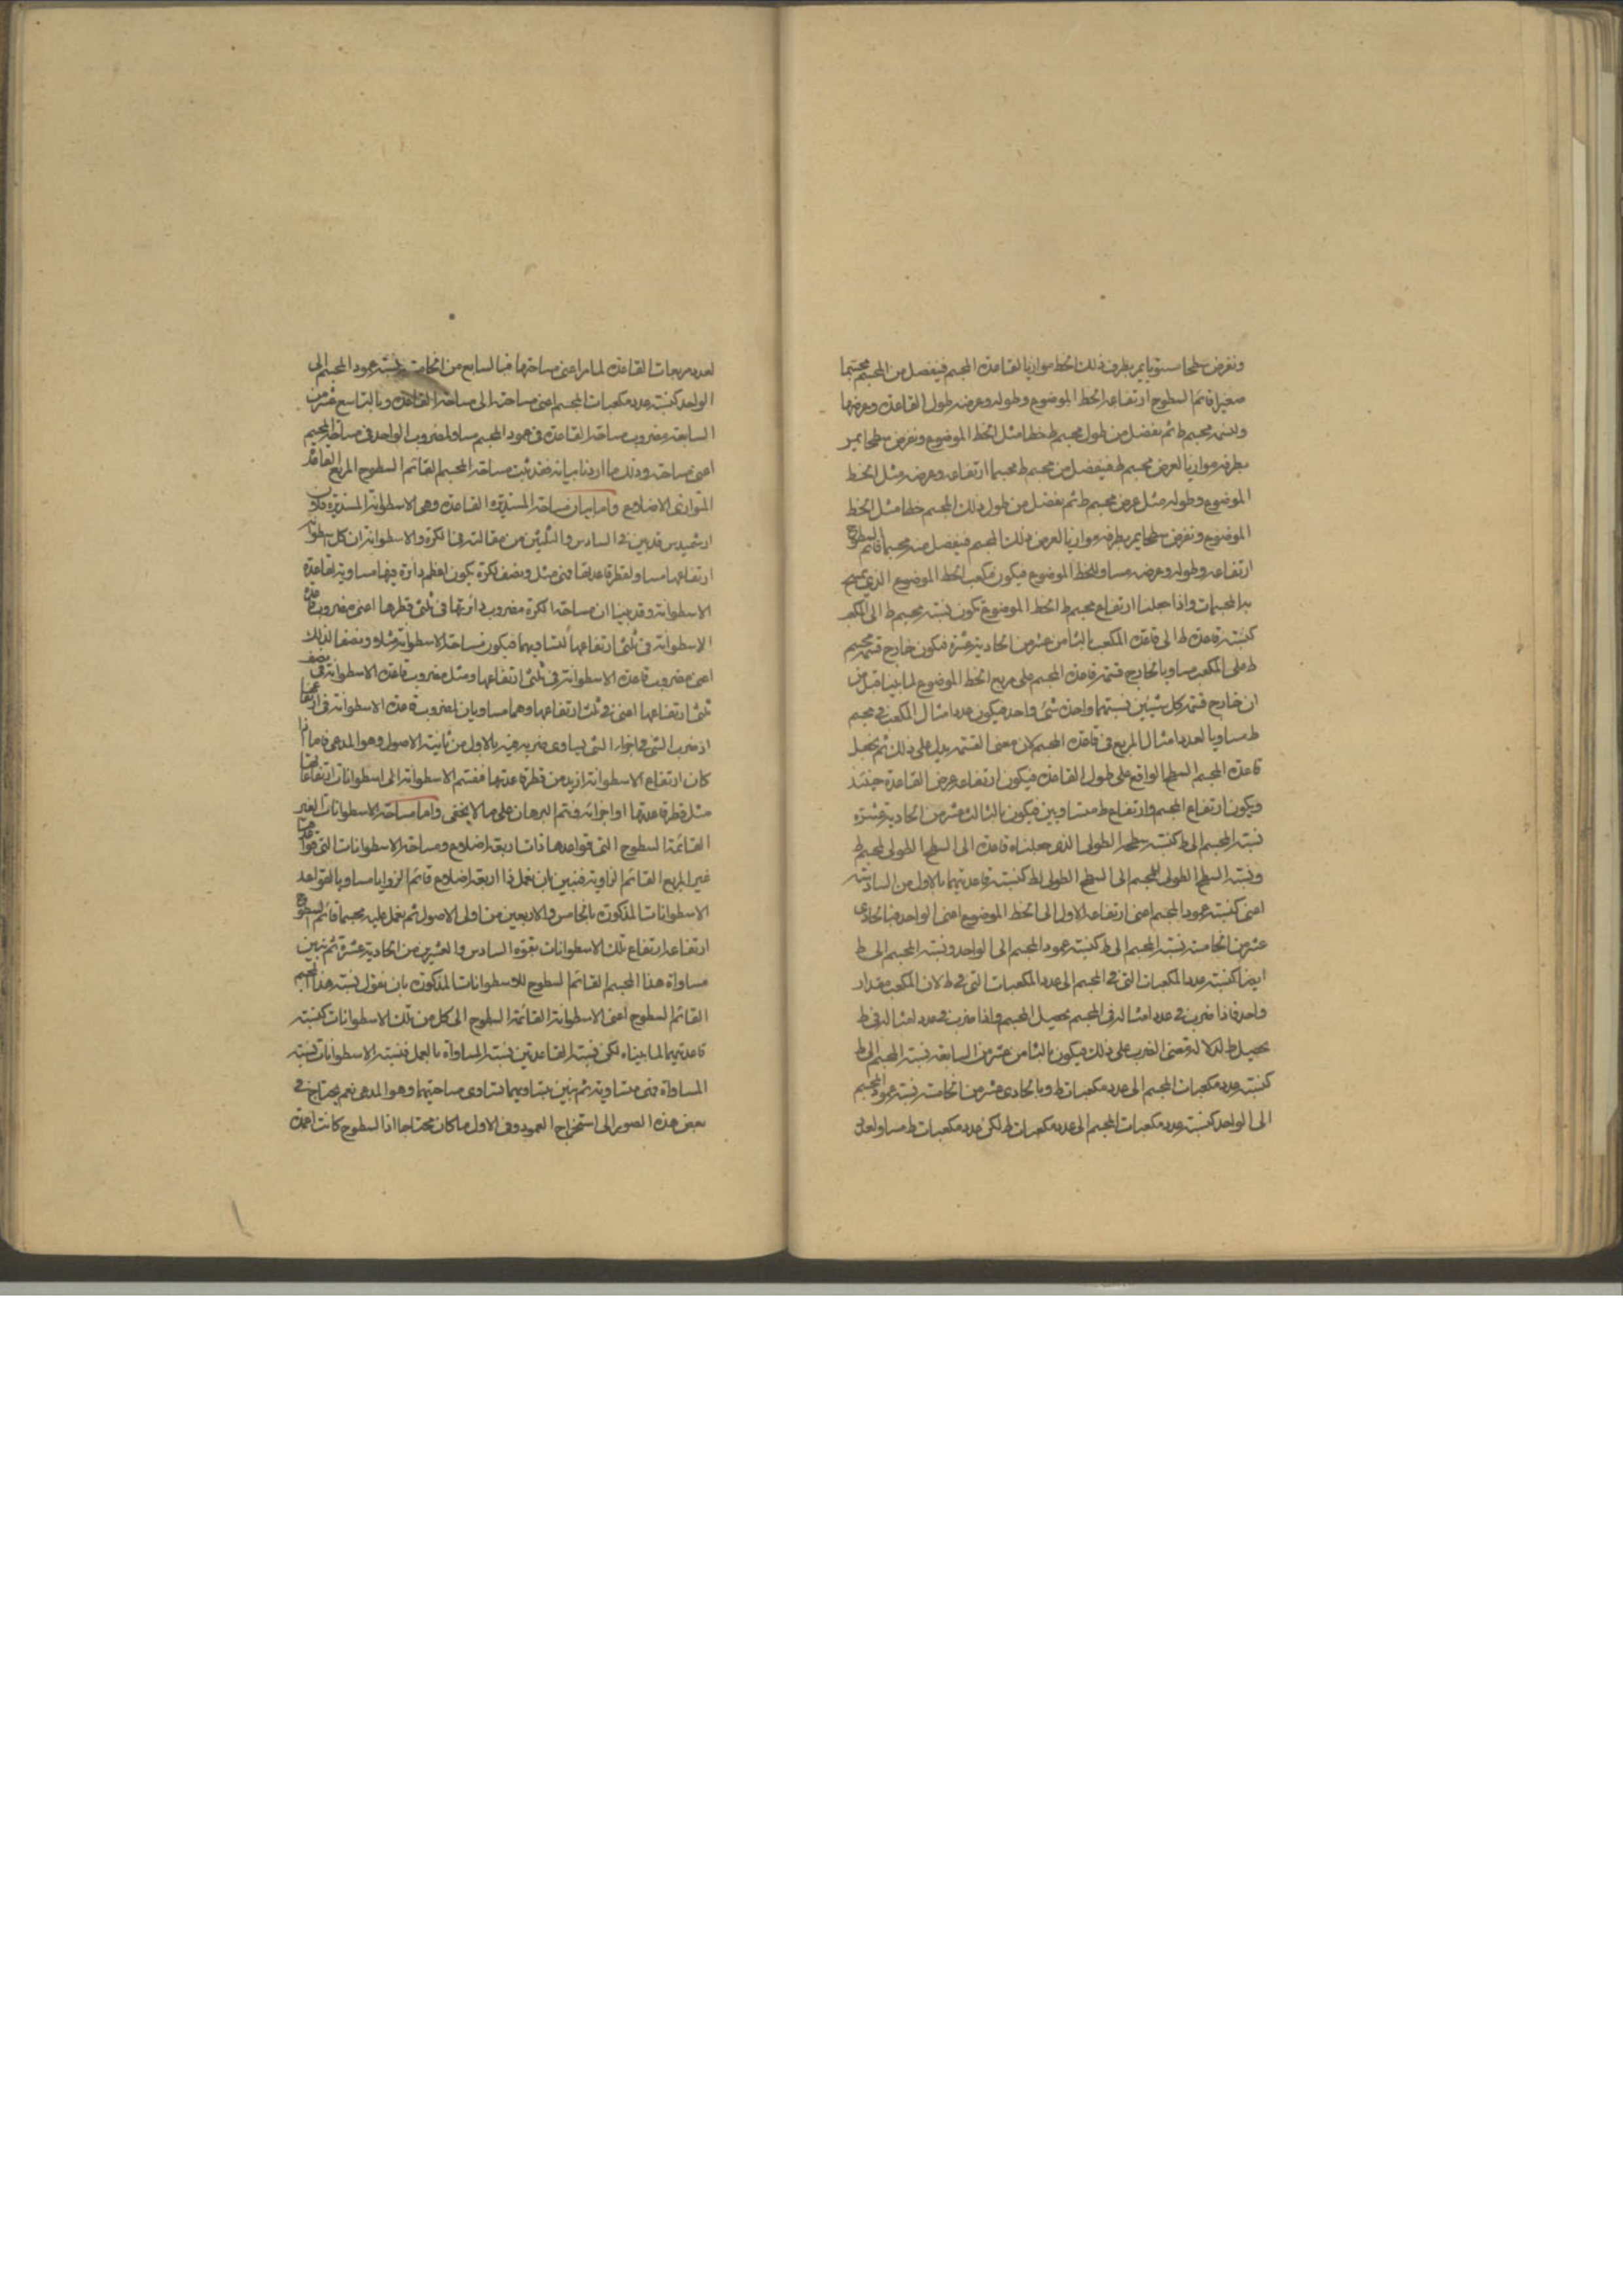 ونفرض سطحا مستويا يمر بطرف ذلك الخط موازيا لقاعدة المجسم فيفصل من المجسم مجسما
صغيرا قائم السطوح ارتفاعه الخط الموضوع وطوله وعرضه طول القاعدة وعرضها
ولنسمه مجسم ط ثم نفصل من طول مجسم ط خطا مثل الخط الموضوع ونفرض سطحا يمر
بطرفه موازيا لعرض مجسم ط فيفصل من مجسم ط مجسما ارتفاعه وعرضه مثل الخط
الموضوع وطوله مثل عرض مجسم ط ثم نفصل من طول ذلك المجسم خطا مثل الخط
الموضوع ونفرض سطحا يمر بطرفه موازيا لعرض ذلك المجسم فيفصل منه مجسما قائم السطوح
ارتفاعه وطوله وعرضه مساو للخط الموضوع فيكون مكعب الخط الموضوع الذي يمسح
به المجسمات واذا جعلنا ارتفاع مجسم ط الخط الموضوع تكون نسبة مجسم ط الى المكعب
كنسبة قاعدة ط الى قاعدة المكعب بالثامن عشر من الحادية عشرة فيكون خارج قسمة مجسم
ط على المكعب مساويا لخارج قسمة قاعدة المجسم على مربع الخط الموضوع لما بينا قبل من
ان خارج قسمة كل شيئين نسبتهما واحدة شئ واحد فيكون عدد امثال المكعب في مجسم
ط مساويا لعدد امثال المربع في قاعدة المجسم لان معنى القسمة يدل على ذلك ثم نجعل
قاعدة المجسم السطح الواقع على طول القاعدة فيكون ارتفاعه عرض القاعدة حينئذ
ويكون ارتفاع المجسم وارتفاع ط متساويين فيكون بالثالث عشر من الحادية عشرة
نسبة المجسم الى ط كنسبة سطحه الطولى الذى جعلناه قاعدة الى السطح الطولى لمجسم ط
ونسبة السطح الطولى للمجسم الى السطح الطولى لط كنسبة قاعدتيهما بالاول من السادسة
اعنى كنسبة عمود المجسم اعنى ارتفاعه الاول الى الخط الموضوع اعنى الواحد فبالحادى
عشر من الخامسة نسبة المجسم الى ط كنسبة عمود المجسم الى الواحد ونسبة المجسم الى ط
ايضا كنسبة عدد المكعبات التى في المجسم الى عدد المكعبات التى في ط لان المكعب مقدار
واحد فاذا ضرب في عدد امثاله في المجسم يحصل المجسم واذا ضرب في عدد امثاله في ط
يحصل ط لدلالة معنى الضرب على ذلك فيكون بالثامن عشر من السابعة نسبة المجسم الى ط
كنسبة عدد مكعبات المجسم الى عدد مكعبات ط وبالحادى عشر من الخامسة نسبة عمود المجسم
الى الواحد كنسبة عدد مكعبات المجسم الى عدد مكعبات ط لكن عدد مكعبات ط مساو لعدد
لعدد مربعات القاعدة لما مر اعنى مساحتها فبالسابع من الخامسة نسبة عمود المجسم الى
الواحد كنسبة عدد مكعبات المجسم اعنى مساحته الى مساحة القاعدة وبالتاسع عشر من
السابعة مضروب مساحة القاعدة في عمود المجسم مساو لمضروب الواحد في مساحة المجسم
اعنى مساحته وذلك ما اردنا بيانه فقد ثبت مساحة المجسم القائم السطوح المربع القاعدة
المتوازى الاضلاع واما بيان مساحة المستديرة القاعدة وهى الاسطوانة المستديرة فلان
ارشميدس قد بين في السادس والثلثين من مقالته في الكرة والاسطوانة ان كل اسطوانة
ارتفاعها مساو لقطر قاعدتها فهى مثل ونصف لكرة يكون اعظم دائرة فيها مساوية لقاعدة
الاسطوانة وقد بينا ان مساحة الكرة مضروب دائرتها في ثلثى قطرها اعنى مضروب قاعدة
الاسطوانة في ثلثى ارتفاعها لتساويهما فيكون مساحة الاسطوانة مثلا ونصفا لذلك
اعنى مضروب قاعدة الاسطوانة في ثلثى ارتفاعها ومثل مضروب قاعدة الاسطوانة في نصف
ثلثى ارتفاعها اعنى في ثلث ارتفاعها وهما مساويان لمضروب قاعدة الاسطوانة في ارتفاعها
اذ ضرب الشئ في اجزاء الشئ يساوى ضربه فيه بالاول من ثانية الاصول وهو المدعى فاما اذا
كان ارتفاع الاسطوانة ازيد من قطر قاعدتها فنقسم الاسطوانة الى اسطوانات ارتفاعاتها
مثل قطر قاعدتها او اجزائه ونتم البرهان على ما لا يخفى واما مساحة الاسطوانات الغير
القائمة السطوح التى قواعدها ذات اربعة اضلاع ومساحة الاسطوانات التى قواعدها
غير المربع القائم الزاوية فنبين بان نعمل ذا اربعة اضلاع قائم الزوايا مساويا لقواعد
الاسطوانات المذكورة بالخامس والاربعين من اولى الاصول ثم نعمل عليه مجسما قائم السطوح
ارتفاعه ارتفاع تلك الاسطوانات بقوة السادس والعشرين من الحادية عشرة ثم نبين
مساواة هذا المجسم القائم السطوح للاسطوانات المذكورة بان نقول نسبة هذا المجسم
القائم السطوح اعنى الاسطوانة القائمة السطوح الى كل من تلك الاسطوانات كنسبة
قاعدتيهما لما بيناه لكن نسبة القاعدتين نسبة المساواة بالعمل فنسبة الاسطوانات نسبة
المساواة فهى متساوية ثم نبين بتساويهما تساوى مساحتيهما وهو المدعى نعم يحتاج في
بعض هذه الصور الى استخراج العمود وفى الاول ما كان محتاجا اذ السطوح كانت اعمدة